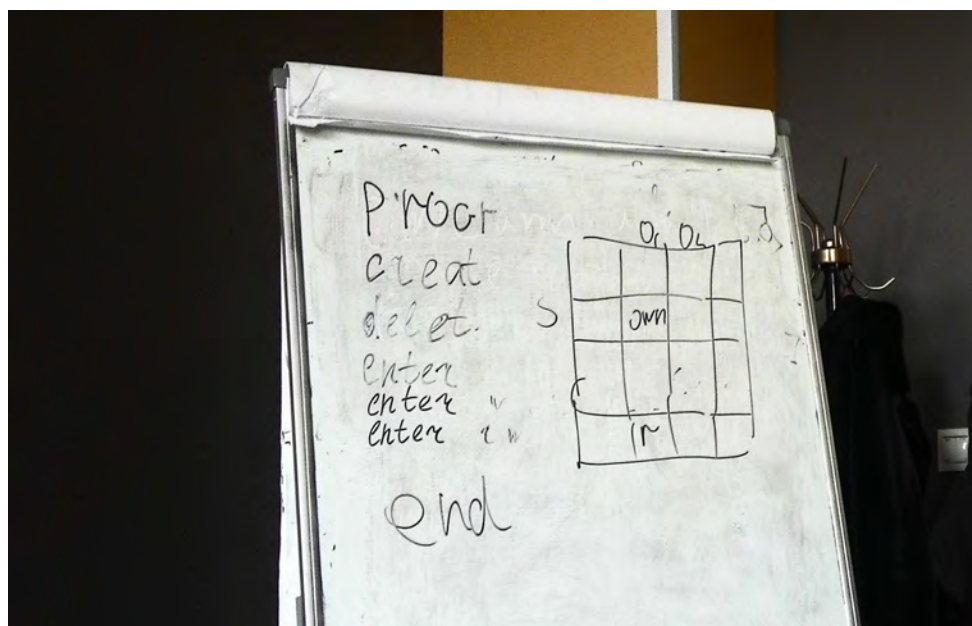 Progr
creat
delet.
enter
enter "
enter r w
end
O₁ O₂
S
own
r